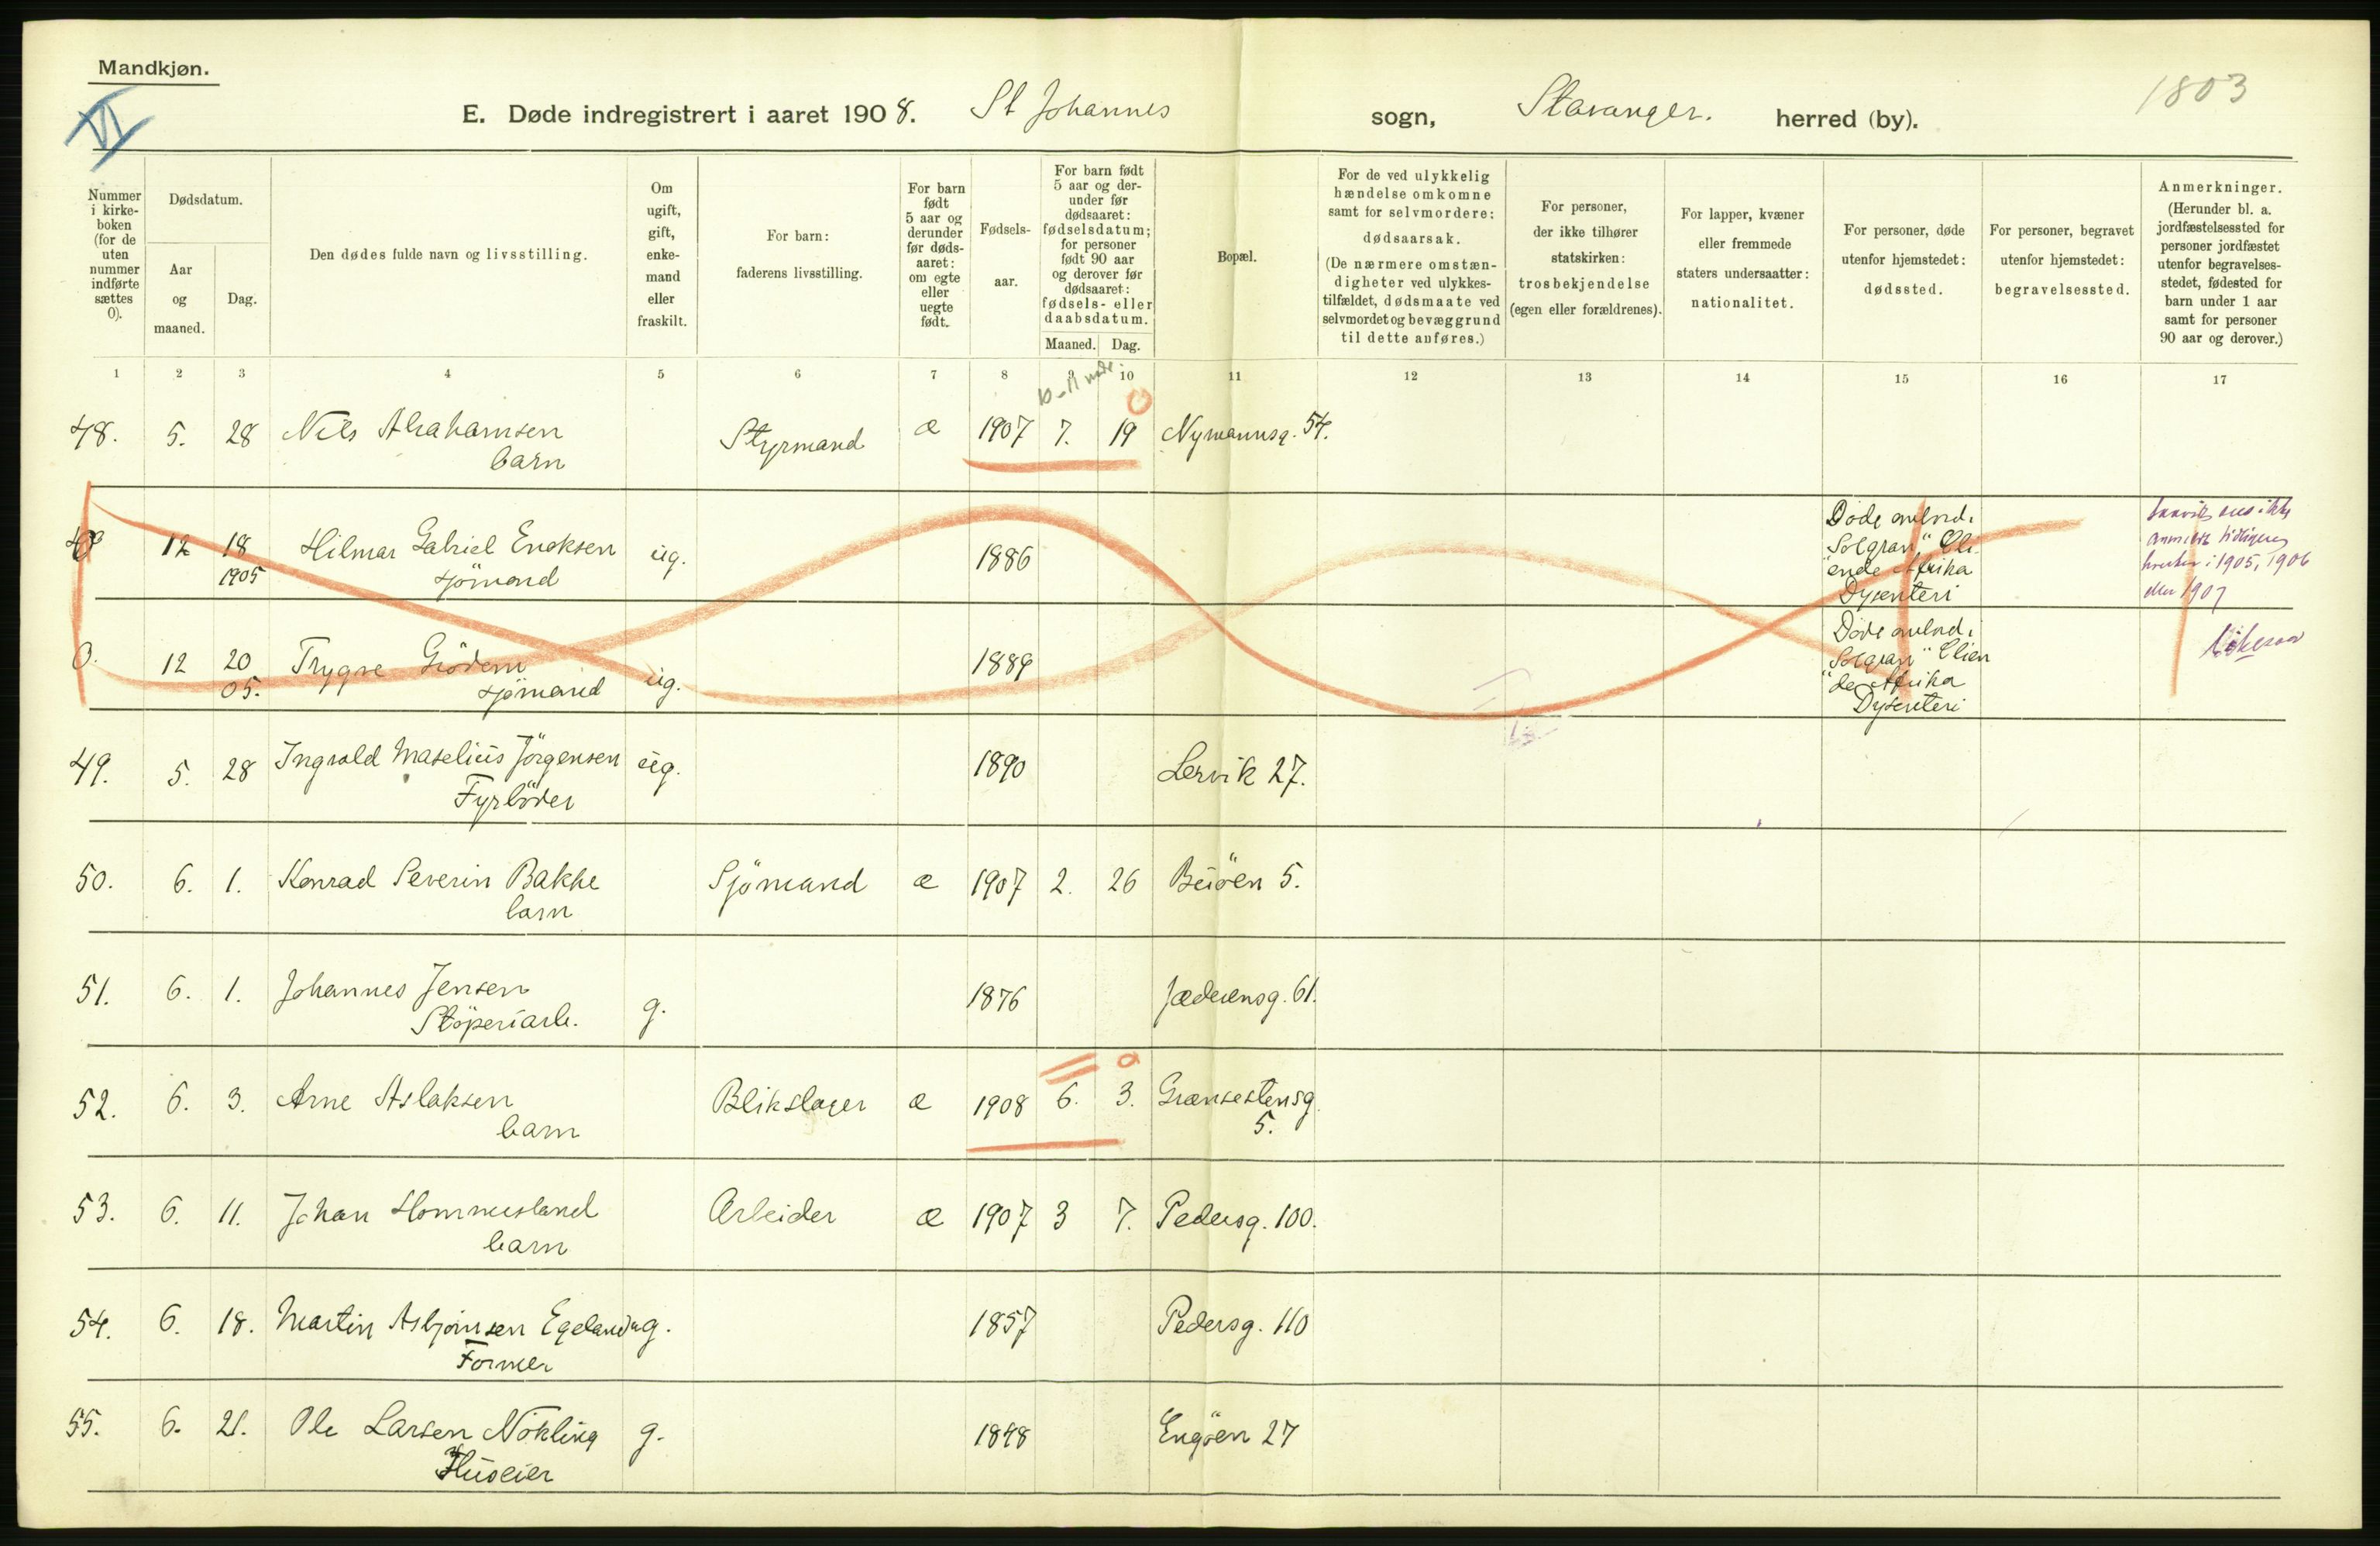 Mandkjøn.
VI
E. Døde indregistrert i aaret 1908. St Johannes sogn, Stavanger. herred (by).
1803
Nummer i kirke-boken (for de uten nummer indførte sættes 0).
Dødsdatum.
Aar og maaned.
Dag.
Den dødes fulde navn og livsstilling.
Om ugift, gift, enke-mand eller fraskilt.
For barn: faderens livsstilling.
For barn født 5 aar og derunder før døds-aaret: om egte eller uegte født.
Fødsels-aar.
For barn født 5 aar og der-under før dødsaaret: fødselsdatum; for personer født 90 aar og derover før dødsaaret: fødsels- eller daabsdatum.
Maaned. Dag.
Bopæl.
For de ved ulykkelig hændelse omkomne samt for selvmordere: dødsaarsak. (De nærmere omstæn-digheter ved ulykkes-tilfældet, dødsmaate ved selvmordet og bevæggrund til dette anføres.)
For personer, der ikke tilhører statskirken: trosbekjendelse (egen eller forældrenes).
For lapper, kvæner eller fremmede staters undersaatter: nationalitet.
For personer, døde utenfor hjemstedet: dødssted.
For personer, begravet utenfor hjemstedet: begravelsessted.
Anmerkninger. (Herunder bl. a. jordfæstelsessted for personer jordfæstet utenfor begravelses-stedet, fødested for barn under 1 aar samt for personer 90 aar og derover.)
1 2 3 4 5 6 7 8 9 10 11 12 13 14 15 16 17
48. 5. 28 Nils Abrahamsen Styrmand æ 1907 7. 19 Nymannsg. 54.
barn
12 18 Hilmar Gabriel Enoksen ug. 1886
1905 sjömand
Døde ombord i
"Solgran," Eli
ende Afrika
Dysenteri
i 1905, 1906
eller 1907
0. 12 20 Trygve Grödem ug. 1889
05. sjömand
Døde ombord i
"Solgran" Elien
de Afrika
Dysenteri
49. 5. 28 Ingvald Maselius Jörgensen ug. 1890 Lervik 27.
Fyrböder
50. 6. 1. Konrad Severin Bakke Sjömand æ 1907 2. 26 Buöen 5.
barn
51. 6. 1. Johannes Jensen g. 1876 Jæderensg. 61.
Stöperiarb.
52. 6. 3. Arne Aslaksen Blikslager æ 1908 6. 3. Grænsestensg.
barn 5.
53. 6. 11. Johan Hommesland Arbeider æ 1907 3 7. Pedersg. 100.
barn
54. 6. 18. Martin Asbjörnsen Egeland g. 1857 Pedersg. 110
Former
55. 6. 21. Ole Larsen Nökling g. 1848 Engöen 27
Huseier